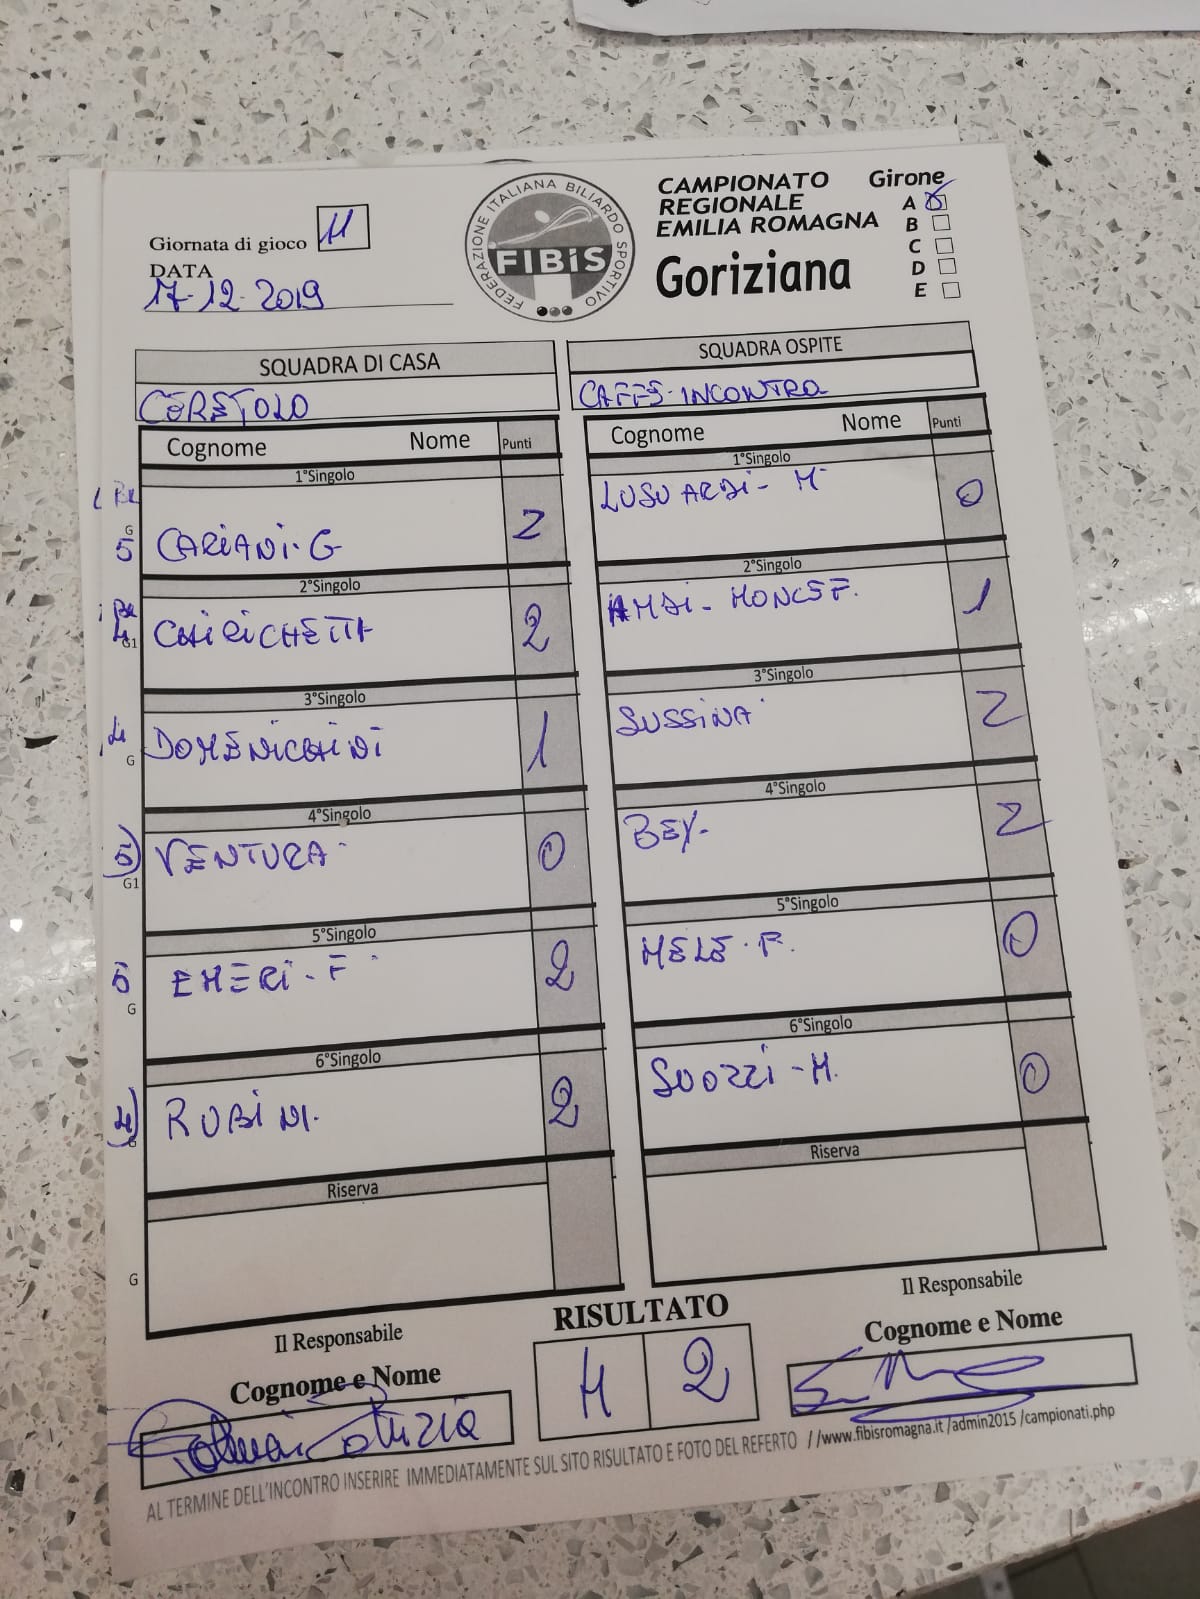 Giornata di gioco 11
DATA
17-12-2019
FEDERAZIONE ITALIANA BILIARDO SPORTIVO
FIBiS
CAMPIONATO
REGIONALE
EMILIA ROMAGNA
Goriziana
Girone
A
B
C
D
E
SQUADRA DI CASA
CERETOLO
Cognome Nome Punti
1°Singolo
G
5 CARIANI-G 2
2°Singolo
4 G1 CHIRICHETTI 2
3°Singolo
4 G DOMENICHINI 1
4°Singolo
5) G1 VENTURA 0
5°Singolo
5 G EMERI-F 2
6°Singolo
4) G RUBINI 2
Riserva
G
SQUADRA OSPITE
CAFFE-INCONTRO
Cognome Nome Punti
1°Singolo
LUSUARDI-M 0
2°Singolo
AMDI-MONCEF. 1
3°Singolo
SUSSINA 2
4°Singolo
BEY- 2
5°Singolo
MELE-F. 0
6°Singolo
SUOZZI-M. 0
Riserva
Il Responsabile
Cognome e Nome
RISULTATO
4 2
Il Responsabile
Cognome e Nome
AL TERMINE DELL'INCONTRO INSERIRE IMMEDIATAMENTE SUL SITO RISULTATO E FOTO DEL REFERTO //www.fibisromagna.it /admin2015 /campionati.php